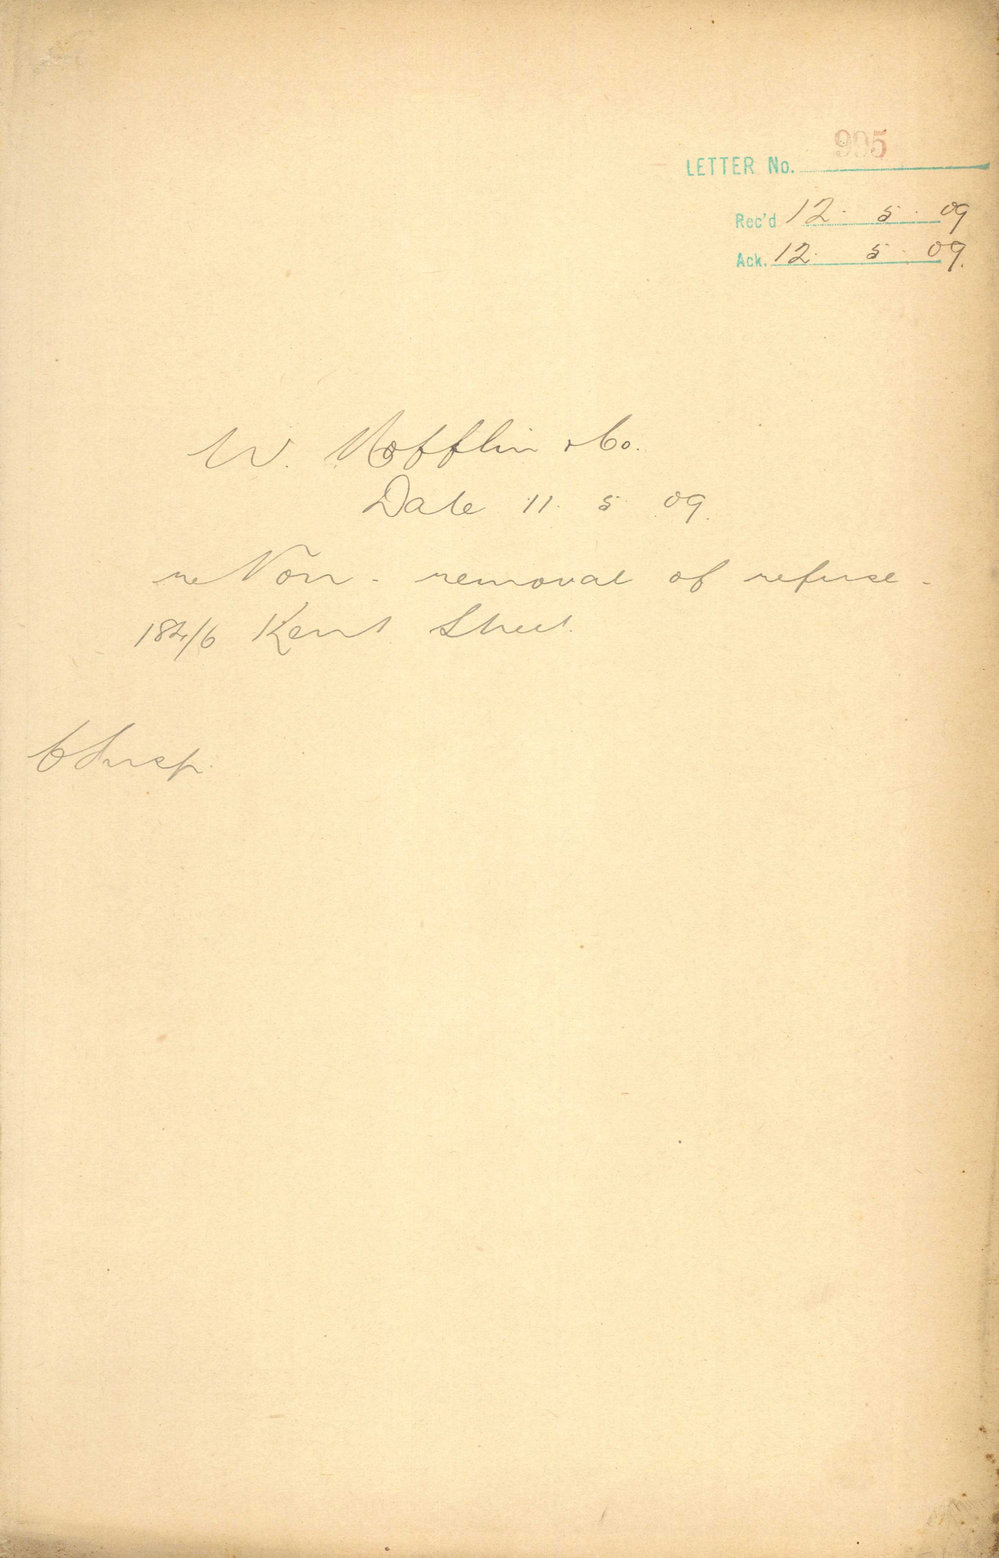 LETTER No. 995
Rec'd 12. 5. 09
Ack. 12. 5. 09.
W. Hofflin & Co.
Date 11. 5. 09.
re Non-removal of refuse -
184/6 Kent Street.
C Insp.